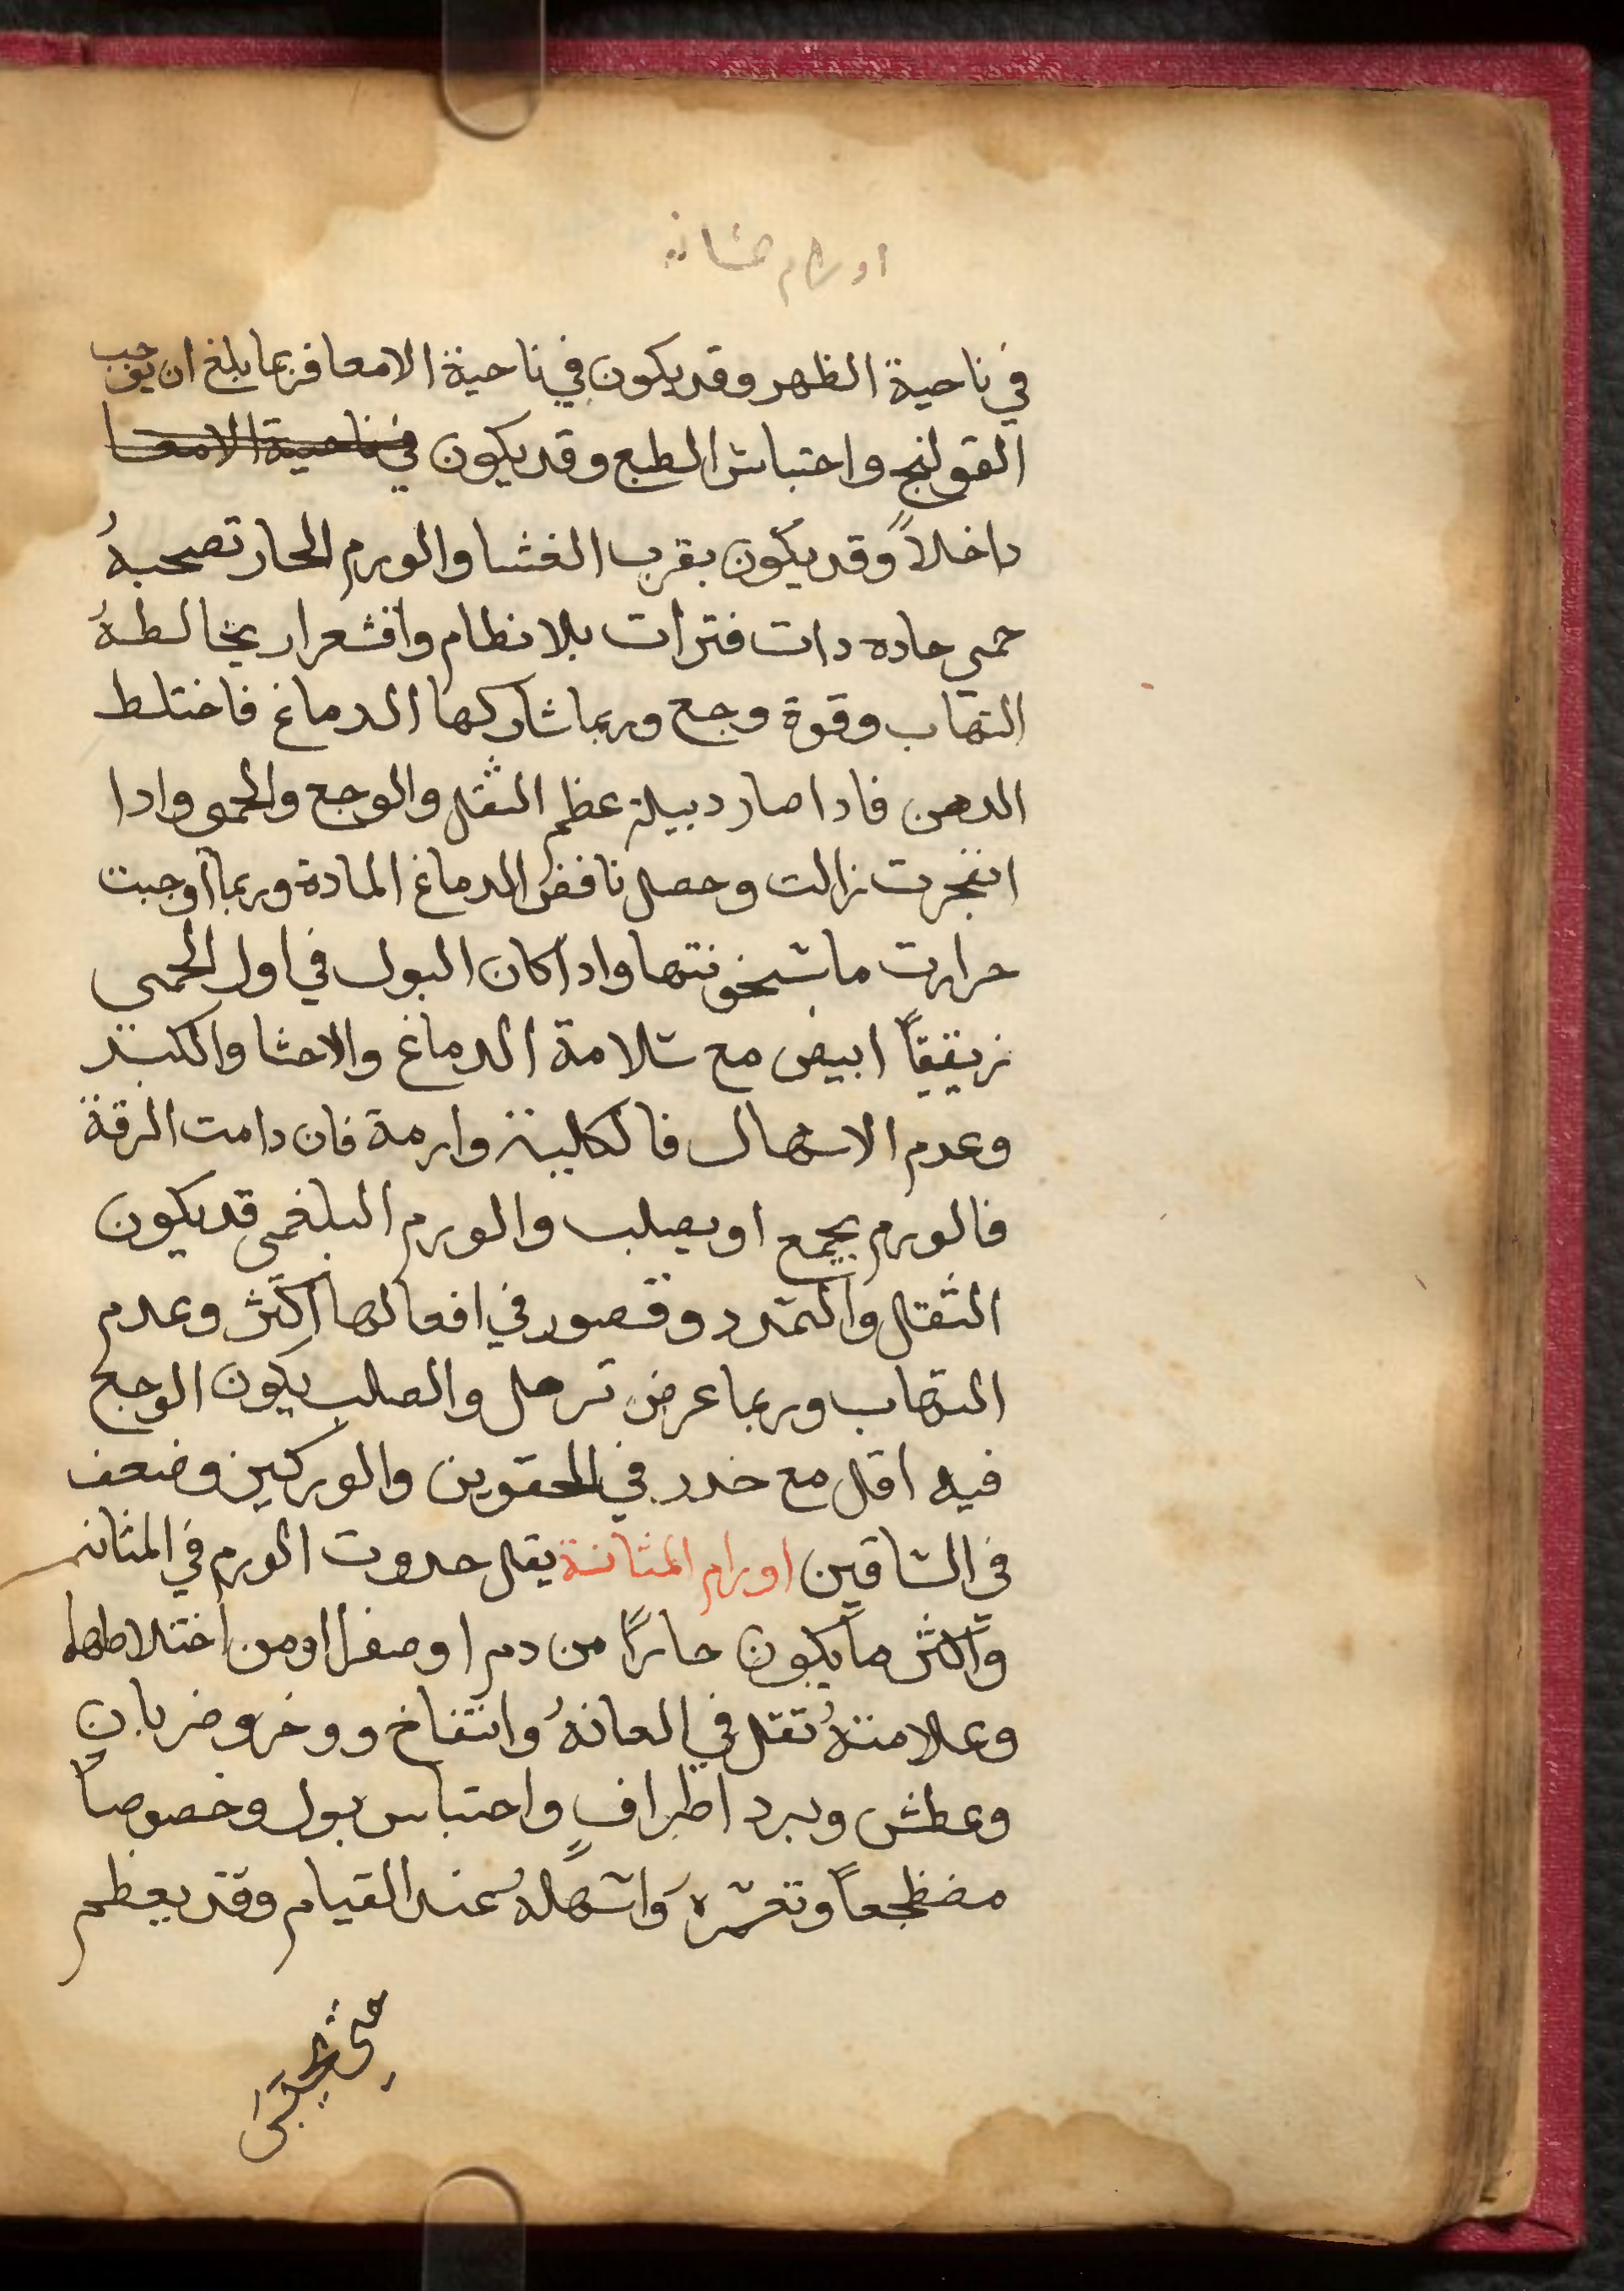 اورام مثانه
في ناحية الظهر وقد يكون في ناحية الامعا فربما بلغ ان يوجب
القولنج واحتباس الطبع وقد يكون في ناحية الامعا
داخلاً وقد يكون بقرب الغشا والورم الحار تصحبهُ
حمى حاده دات فترات بلا نظام واقشعرار يخالطهُ
التهاب وقوة وجع وربما شاركها الدماغ فاختلط
الدهن فادا صار دبيلة عظم الثقل والوجع والحمى وادا
انفجرت زالت وحصل نافض الدماغ المادة وربما اوجبت
حرارت ما بسخونتها وادا كان البول في اول الحمى
رقيقاً ابيض مع سلامة الدماغ والاحشا والكبد
وعدم الاسهال فالكلية وارمة فان دامت الرقة
فالورم يجمع او يصلب والورم البلغمى قد يكون
الثقل والتمدد وقصور في افعالها اكثر وعدم
التهاب وربما عرض ترهل والصلب يكون الوجع
فيه اقل مع خدر في الحقوين والوركين وضعف
في الساقين اورام المثانة يقل حدوت الورم في المثانه
واكثر ما يكون حاراً من دم او صفرا او من اختلاطهما
وعلامتهُ تقل في العانهُ وانتفاخ ووخز وضربان
وعطش وبرد اطراف واحتباس بول وخصوصاً
مضطجعاً وتعسره واسهلهُ عند القيام وقد يعظم
حتى